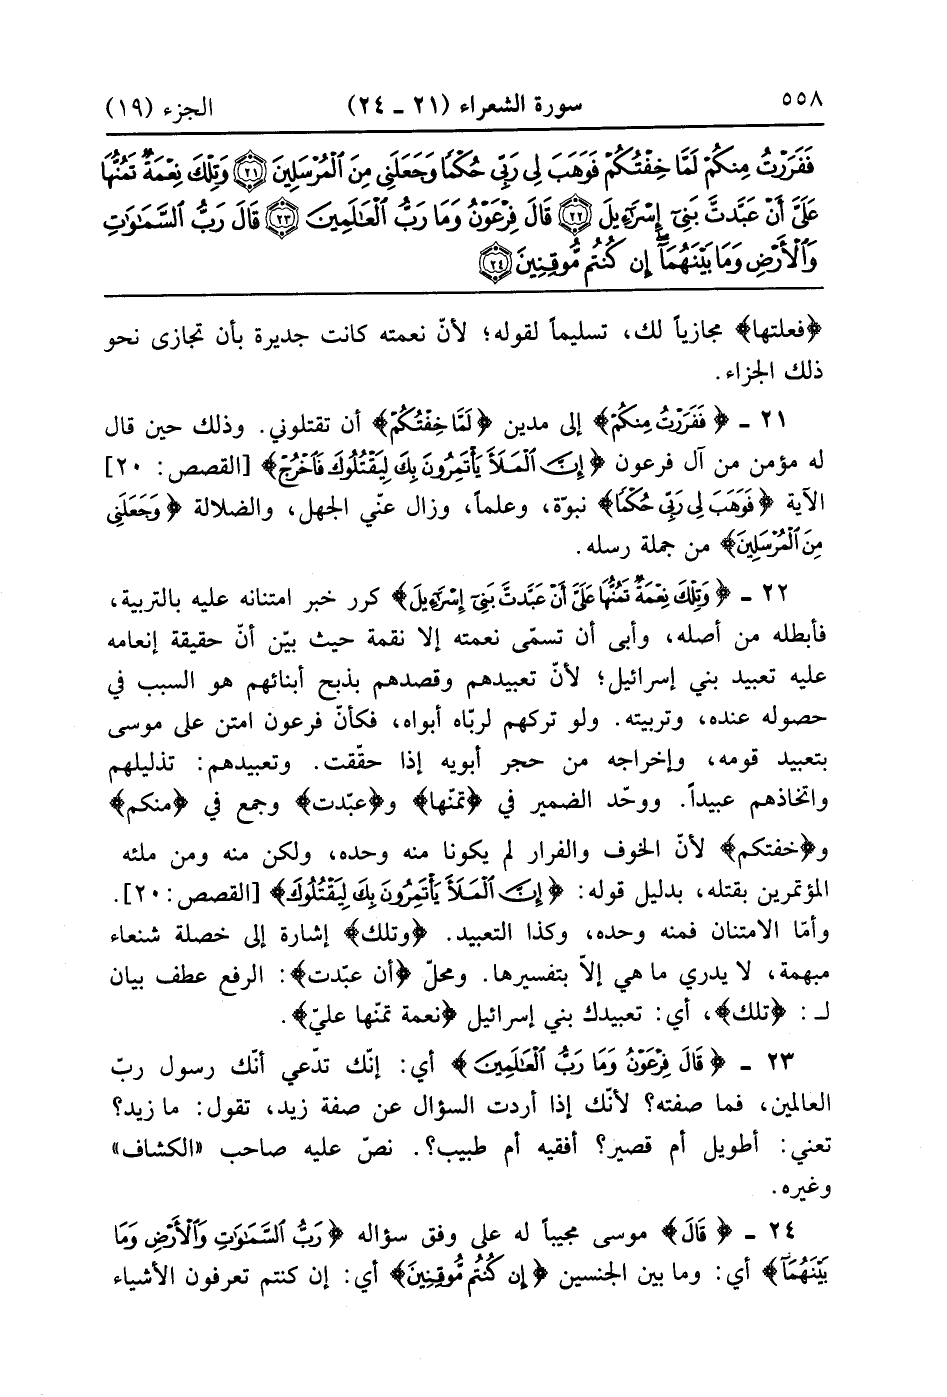 ٥٥٨ سورة الشعراء (٢١ ـ ٢٤) الجزء (١٩)
فَفَرَرْتُ مِنكُمْ لَمَّا خِفْتُكُمْ فَوَهَبَ لِى رَبِّى حُكْمًا وَجَعَلَنِى مِنَ ٱلْمُرْسَلِينَ ﴿٢١﴾ وَتِلْكَ نِعْمَةٌ تَمُنُّهَا
عَلَىَّ أَنْ عَبَّدتَّ بَنِىٓ إِسْرَٰٓءِيلَ ﴿٢٢﴾ قَالَ فِرْعَوْنُ وَمَا رَبُّ ٱلْعَٰلَمِينَ ﴿٢٣﴾ قَالَ رَبُّ ٱلسَّمَٰوَٰتِ
وَٱلْأَرْضِ وَمَا بَيْنَهُمَآ إِن كُنتُم مُّوقِنِينَ ﴿٢٤﴾
﴿فعلتها﴾ مجازياً لك، تسليماً لقوله؛ لأنّ نعمته كانت جديرة بأن تجازى نحو
ذلك الجزاء.
٢١ ـ ﴿فَفَرَرْتُ مِنكُمْ﴾ إلى مدين ﴿لَمَّا خِفْتُكُمْ﴾ أن تقتلوني. وذلك حين قال
له مؤمن من آل فرعون ﴿إِنَّ ٱلْمَلَأَ يَأْتَمِرُونَ بِكَ لِيَقْتُلُوكَ فَٱخْرُجْ﴾ [القصص: ٢٠]
الآية ﴿فَوَهَبَ لِى رَبِّى حُكْمًا﴾ نبوّة، وعلماً، وزال عنّي الجهل، والضلالة ﴿وَجَعَلَنِى
مِنَ ٱلْمُرْسَلِينَ﴾ من جملة رسله.
٢٢ ـ ﴿وَتِلْكَ نِعْمَةٌ تَمُنُّهَا عَلَىَّ أَنْ عَبَّدتَّ بَنِىٓ إِسْرَٰٓءِيلَ﴾ كرر خبر امتنانه عليه بالتربية،
فأبطله من أصله، وأبى أن تسمّى نعمته إلا نقمة حيث بيّن أنّ حقيقة إنعامه
عليه تعبيد بني إسرائيل؛ لأنّ تعبيدهم وقصدهم بذبح أبنائهم هو السبب في
حصوله عنده، وتربيته. ولو تركهم لربّاه أبواه، فكأنّ فرعون امتن على موسى
بتعبيد قومه، وإخراجه من حجر أبويه إذا حقّقت. وتعبيدهم: تذليلهم
واتخاذهم عبيداً. ووحّد الضمير في ﴿تمنّها﴾ و﴿عبّدت﴾ وجمع في ﴿منكم﴾
و﴿خفتكم﴾ لأنّ الخوف والفرار لم يكونا منه وحده، ولكن منه ومن ملئه
المؤتمرين بقتله، بدليل قوله: ﴿إِنَّ ٱلْمَلَأَ يَأْتَمِرُونَ بِكَ لِيَقْتُلُوكَ﴾ [القصص: ٢٠].
وأمّا الامتنان فمنه وحده، وكذا التعبيد. ﴿وتلك﴾ إشارة إلى خصلة شنعاء
مبهمة، لا يدري ما هي إلاّ بتفسيرها. ومحلّ ﴿أن عبّدت﴾: الرفع عطف بيان
لـ: ﴿تلك﴾، أي: تعبيدك بني إسرائيل ﴿نعمة تمنّها عليّ﴾.
٢٣ ـ ﴿قَالَ فِرْعَوْنُ وَمَا رَبُّ ٱلْعَٰلَمِينَ﴾ أي: إنّك تدّعي أنّك رسول ربّ
العالمين، فما صفته؟ لأنّك إذا أردت السؤال عن صفة زيد، تقول: ما زيد؟
تعني: أطويل أم قصير؟ أفقيه أم طبيب؟. نصّ عليه صاحب «الكشاف»
وغيره.
٢٤ ـ ﴿قَالَ﴾ موسى مجيباً له على وفق سؤاله ﴿رَبُّ ٱلسَّمَٰوَٰتِ وَٱلْأَرْضِ وَمَا
بَيْنَهُمَآ﴾ أي: وما بين الجنسين ﴿إِن كُنتُم مُّوقِنِينَ﴾ أي: إن كنتم تعرفون الأشياء